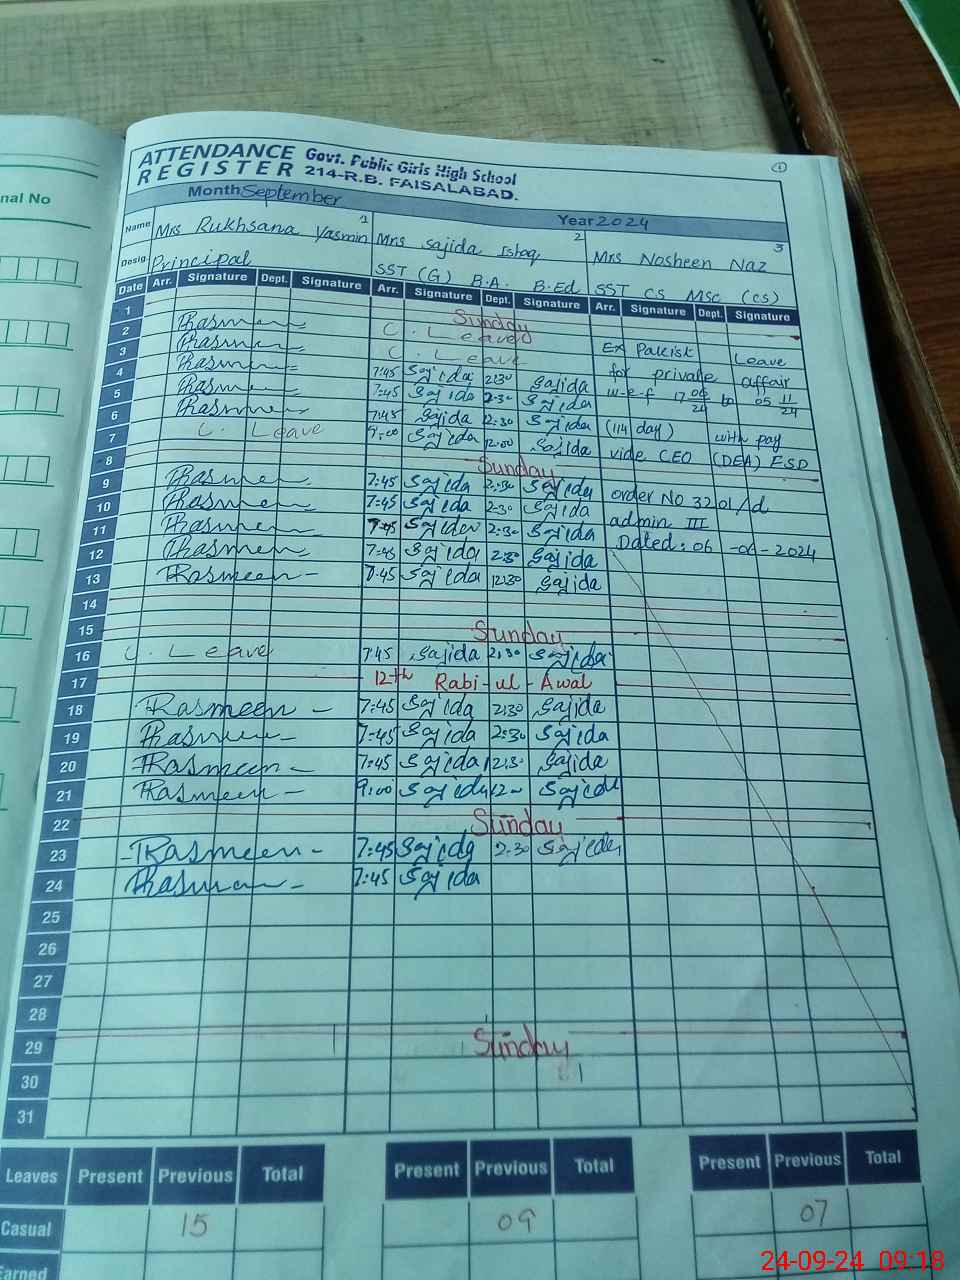 nal No
ATTENDANCE REGISTER Govt. Public Girls High School
214-R.B. FAISALABAD.
1
Month September Year 2024
Name Mrs Rukhsana Yasmin 1 Mrs Sajida Ishaq 2 Mrs Nosheen Naz 3
Desig. Principal SST (G) B.A. B.Ed SST CS MSc (CS)
Date Arr. Signature Dept. Signature Arr. Signature Dept. Signature Arr. Signature Dept. Signature
1 Sunday
2 C. Leave
3 C. Leave Ex Pakist Leave
4 7:45 Sajida 2:30 Sajida for private affair
5 7:45 Sajida 2:30 Sajida w-e-f 17 06/24 to 05 11/24
6 7:45 Sajida 2:30 Sajida (114 day) with pay
7 C. Leave 9:00 Sajida 12:00 Sajida vide CEO (DEA) FSD
8 Sunday
9 7:45 Sajida 2:30 Sajida order No 3201/d
10 7:45 Sajida 2:30 Sajida admin III
11 7:45 Sajida 2:30 Sajida Dated: 06 -06-2024
12 7:45 Sajida 2:30 Sajida
13 Rasmeen 7:45 Sajida 12:30 Sajida
14
15 Sunday
16 C. Leave 7:45 Sajida 2:30 Sajida
17 12th Rabi-ul-Awal
18 Rasmeen 7:45 Sajida 2:30 Sajida
19 7:45 Sajida 2:30 Sajida
20 Rasmeen 7:45 Sajida 2:30 Sajida
21 Rasmeen 9:00 Sajida 12- Sajida
22 Sunday
23 Rasmeen 7:45 Sajida 2:30 Sajida
24 7:45 Sajida
25
26
27
28
29 Sunday
30
31
Leaves Present Previous Total Present Previous Total Present Previous Total
Casual 15 09 07
Earned
24-09-24 09:18